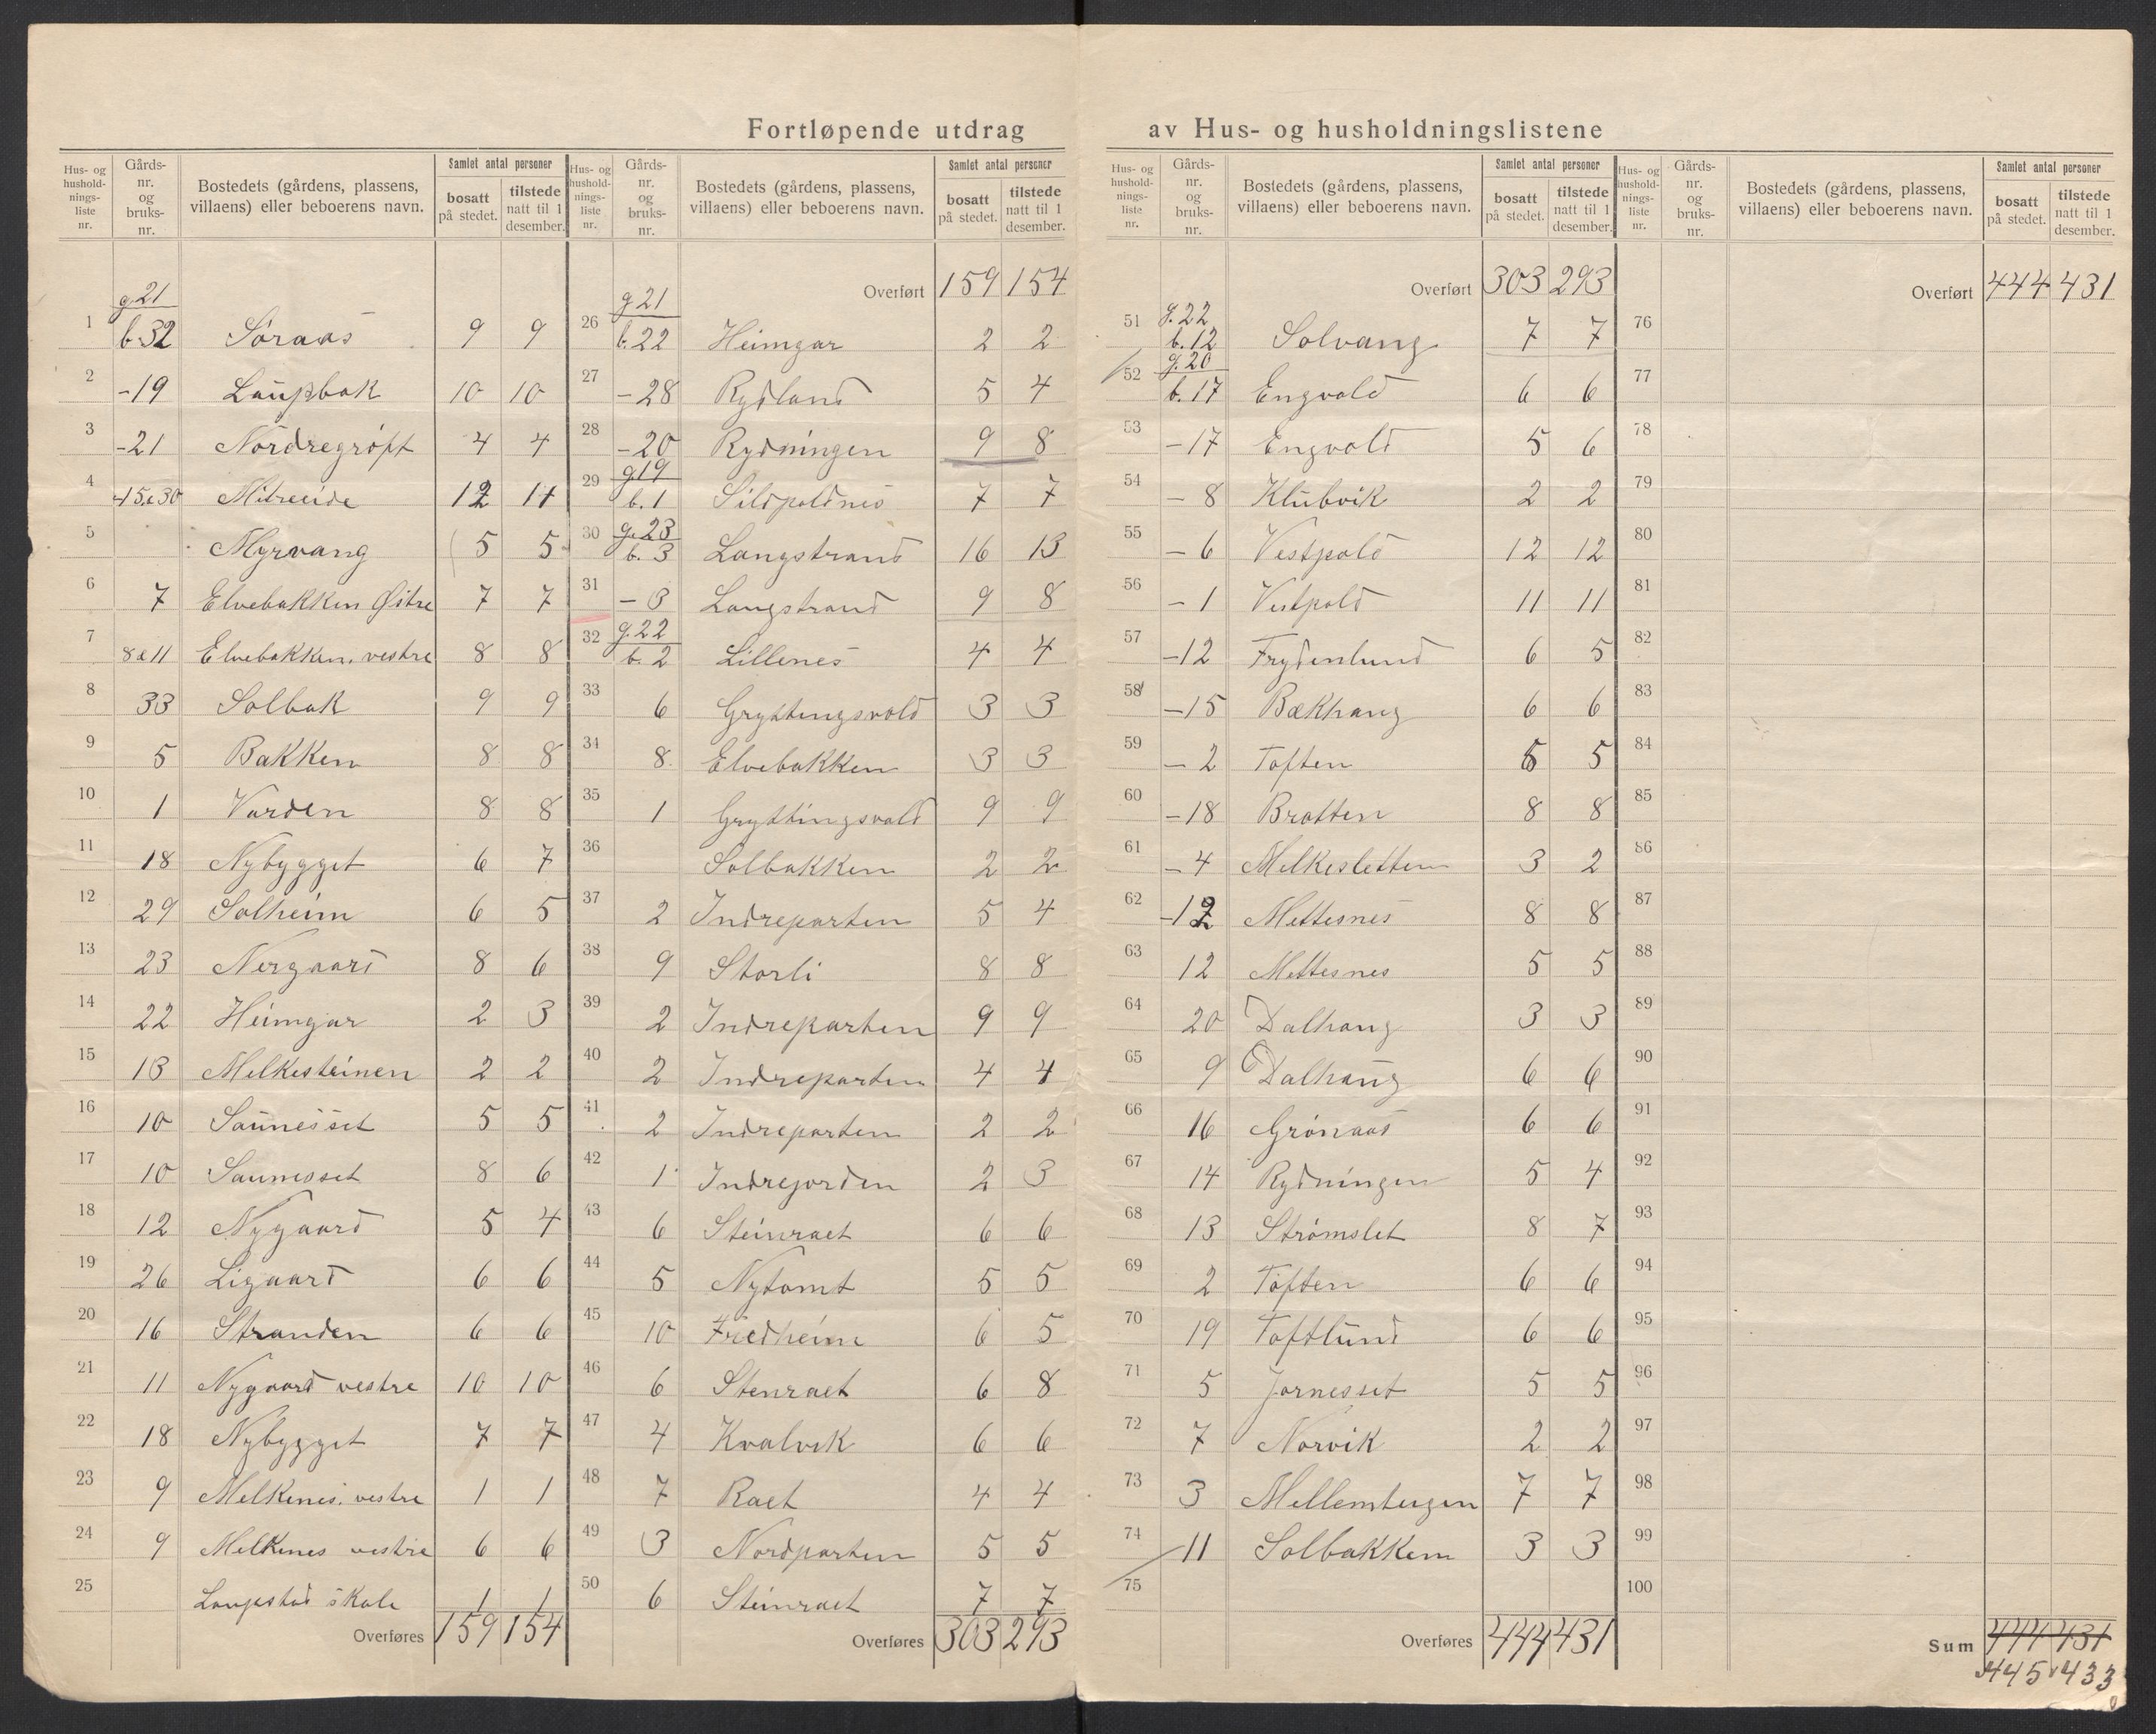 Fortløpende utdrag av Hus- og husholdningslistene
Hus- og husholdnings- liste nr. Gårds- nr. og bruks- nr. Bostedets (gårdens, plassens, villaens) eller beboerens navn. Samlet antal personer bosatt på stedet. tilstede natt til 1 desember.
g.21
1 b.32 Søraas 9 9
2 -19 Laupbak 10 10
3 -21 Nordregrøft 4 4
4 -15&30 Mitreeide 12 11
5 Myrvang 5 5
6 7 Elvebakken Østre 7 7
7 8&11 Elvebakken. vestre 8 8
8 33 Solbak 9 9
9 5 Bakken 8 8
10 1 Varden 8 8
11 18 Nybygget 6 7
12 29 Solheim 6 5
13 23 Nergaard 8 6
14 22 Heimgar 2 3
15 13 Melkesteinen 2 2
16 10 Saunesset 5 5
17 10 Saunesset 8 6
18 12 Nygaard 5 4
19 26 Ligaard 6 6
20 16 Stranden 6 6
21 11 Nygaard vestre 10 10
22 18 Nybygget 7 7
23 9 Melkenes. vestre 1 1
24 9 Melkenes vestre 6 6
25 Laupstad skole 1 1
Overføres 159 154
Hus- og husholdnings- liste nr. Gårds- nr. og bruks- nr. Bostedets (gårdens, plassens, villaens) eller beboerens navn. Samlet antal personer bosatt på stedet. tilstede natt til 1 desember.
Overført 159 154
g.21
26 b.22 Heimgar 2 2
27 -28 Rydland 5 4
28 -20 Rydningen 9 8
g.19
29 b.1 Sildpoldnes 7 7
g.23
30 b.3 Langstrand 16 13
31 -3 Langstrand 9 8
g.22
32 b.2 Lillenes 4 4
33 6 Gryttingsvold 3 3
34 8 Elvebakken 3 3
35 1 Gryttingsvald 9 9
36 Solbakken 2 2
37 2 Indreparten 5 4
38 9 Storli 8 8
39 2 Indreparten 9 9
40 2 Indreparten 4 4
41 2 Indreparten 2 2
42 1 Indrejorden 2 3
43 6 Steinraet 6 6
44 5 Nytomt 5 5
45 10 Fredheim 6 5
46 6 Stenraet 6 8
47 4 Kvalvik 6 6
48 7 Raet 4 4
49 3 Nordparten 5 5
50 6 Steinraet 7 7
Overføres 303 293
Hus- og hushold- nings- liste nr. Gårds- nr. og bruks- nr. Bostedets (gårdens, plassens, villaens) eller beboerens navn. Samlet antal personer bosatt på stedet. tilstede natt til 1 desember.
Overført 303 293
g.22
51 b.12 Solvang 7 7
g.20
52 b.17 Engvold 6 6
53 -17 Engvold 5 6
54 -8 Klubvik 2 2
55 -6 Vestpold 12 12
56 -1 Vestpold 11 11
57 -12 Frydenlund 6 5
58 -15 Bækhaug 6 6
59 -2 Toften 5 5
60 -18 Bratten 8 8
61 -4 Melkesletten 3 2
62 -12 Mettesnes 8 8
63 12 Mettesnes 5 5
64 20 Dalhaug 3 3
65 9 Dalhaug 6 6
66 16 Grønaas 6 6
67 14 Rydningen 5 4
68 13 Strømslet 8 7
69 2 Toften 6 6
70 19 Toftlund 6 6
71 5 Jornesset 5 5
72 7 Norvik 2 2
73 3 Mellembergen 7 7
74 11 Solbakken 3 3
75
Overføres 444 431
Hus- og hushold- nings- liste nr. Gårds- nr. og bruks- nr. Bostedets (gårdens, plassens, villaens) eller beboerens navn. Samlet antal personer bosatt på stedet. tilstede natt til 1 desember.
Overført 444 431
76
77
78
79
80
81
82
83
84
85
86
87
88
89
90
91
92
93
94
95
96
97
98
99
100
Sum 444 431
445 433